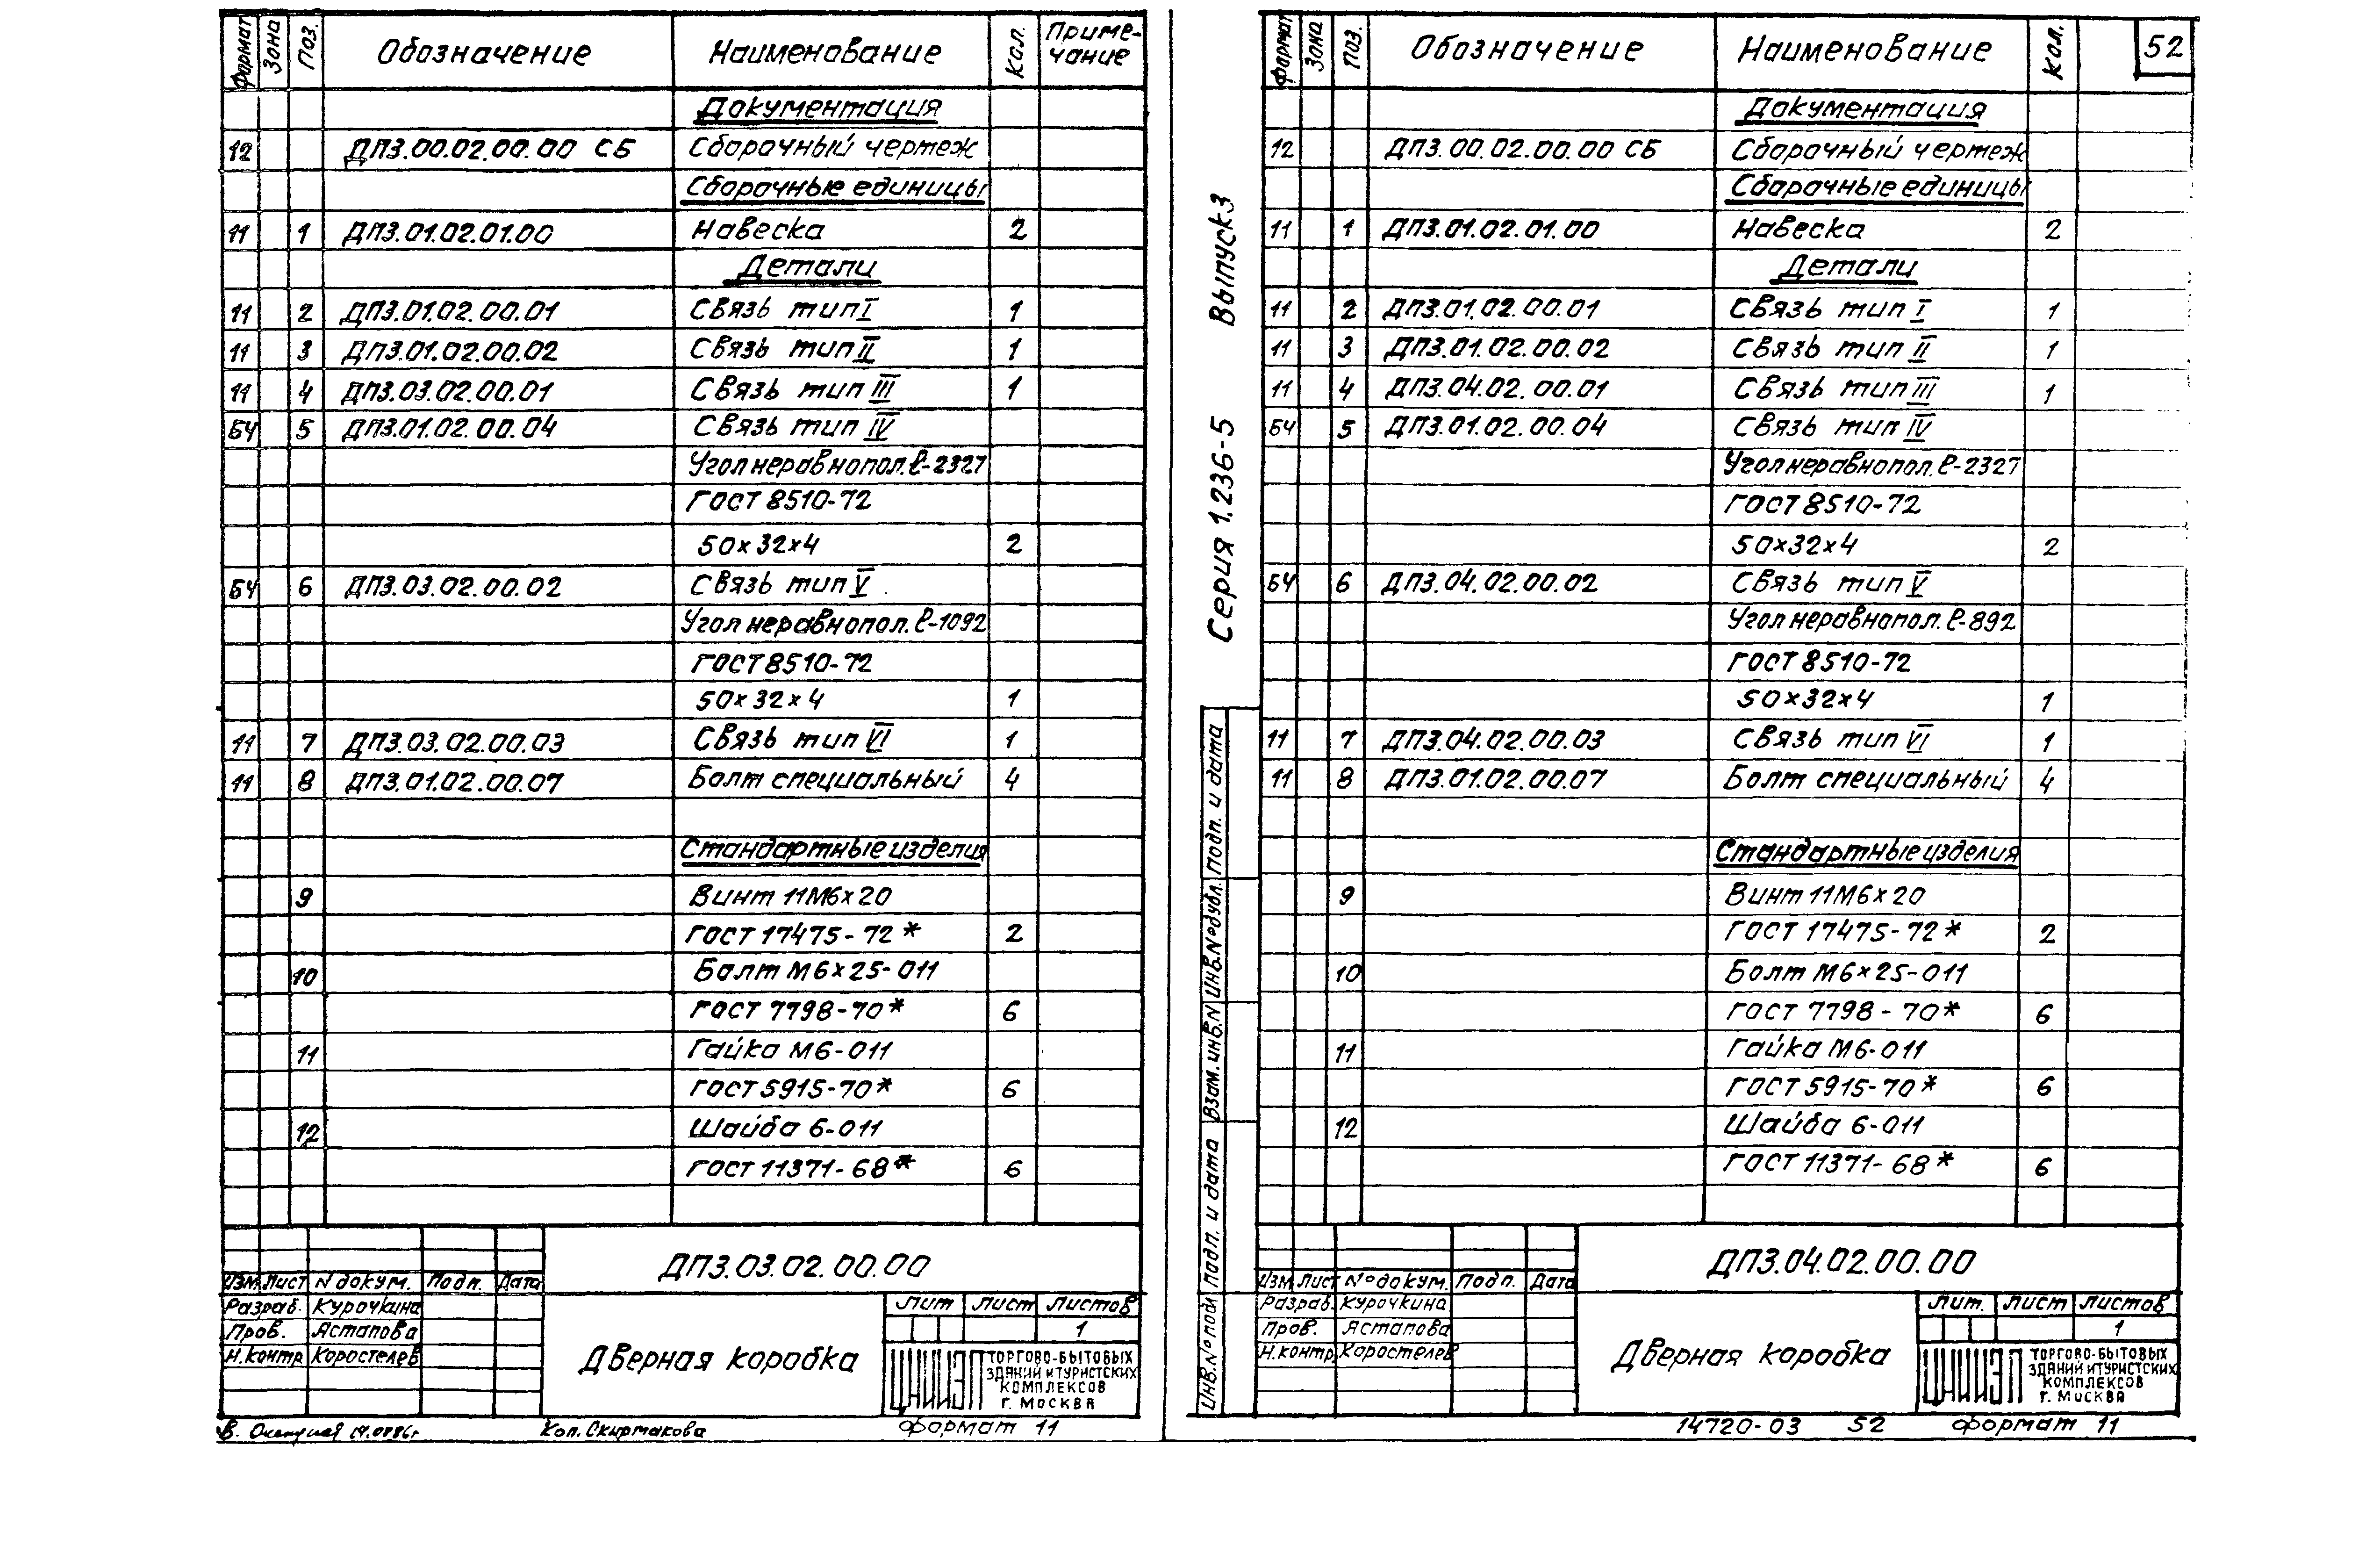 Формат Зона Поз. Обозначение Наименование Кол. Приме-
чание
Документация
12 ДПЗ.00.02.00.00 СБ Сборочный чертеж
Сборочные единицы
11 1 ДПЗ.01.02.01.00 Навеска 2
Детали
11 2 ДПЗ.01.02.00.01 Связь тип I 1
11 3 ДПЗ.01.02.00.02 Связь тип II 1
11 4 ДПЗ.03.02.00.01 Связь тип III 1
БЧ 5 ДПЗ.01.02.00.04 Связь тип IV
Угол неравнопол. ℓ-2327
ГОСТ 8510-72
50×32×4 2
БЧ 6 ДПЗ.03.02.00.02 Связь тип V
Угол неравнопол. ℓ-1092
ГОСТ 8510-72
50×32×4 1
11 7 ДПЗ.03.02.00.03 Связь тип VI 1
11 8 ДПЗ.01.02.00.07 Болт специальный 4
Стандартные изделия
9 Винт 11М6×20
ГОСТ 17475-72* 2
10 Болт М6×25-011
ГОСТ 7798-70* 6
11 Гайка М6-011
ГОСТ 5915-70* 6
12 Шайба 6-011
ГОСТ 11371-68* 6
ДПЗ.03.02.00.00
Изм. Лист N докум. Подп. Дата
Разраб. Курочкина
Пров. Астапова
Н.контр. Коростелев
Дверная коробка
Лит Лист Листов
1
ЦНИИЭП
ТОРГОВО-БЫТОВЫХ
ЗДАНИЙ И ТУРИСТСКИХ
КОМПЛЕКСОВ
Г. МОСКВА
Коп. Скиртакова Формат 11
Серия 1.236-5 Выпуск 3
Формат Зона Поз. Обозначение Наименование Кол. 52
Документация
12 ДПЗ.00.02.00.00 СБ Сборочный чертеж
Сборочные единицы
11 1 ДПЗ.01.02.01.00 Навеска 2
Детали
11 2 ДПЗ.01.02.00.01 Связь тип I 1
11 3 ДПЗ.01.02.00.02 Связь тип II 1
11 4 ДПЗ.04.02.00.01 Связь тип III 1
БЧ 5 ДПЗ.01.02.00.04 Связь тип IV
Угол неравнопол. ℓ-2327
ГОСТ 8510-72
50×32×4 2
БЧ 6 ДПЗ.04.02.00.02 Связь тип V
Угол неравнопол. ℓ-892
ГОСТ 8510-72
50×32×4 1
11 7 ДПЗ.04.02.00.03 Связь тип VI 1
11 8 ДПЗ.01.02.00.07 Болт специальный 4
Стандартные изделия
9 Винт 11М6×20
ГОСТ 17475-72* 2
10 Болт М6×25-011
ГОСТ 7798-70* 6
11 Гайка М6-011
ГОСТ 5915-70* 6
12 Шайба 6-011
ГОСТ 11371-68* 6
Инв.№ подл Подп. и дата Взам.инв.N Инв.№ дубл. Подп. и дата
ДПЗ.04.02.00.00
Изм Лист № докум. Подп. Дата
Разраб. Курочкина
Пров. Астапова
Н.контр. Коростелев
Дверная коробка
Лит. Лист Листов
1
ЦНИИЭП
ТОРГОВО-БЫТОВЫХ
ЗДАНИЙ И ТУРИСТСКИХ
КОМПЛЕКСОВ
Г. МОСКВА
14720-03 52 Формат 11